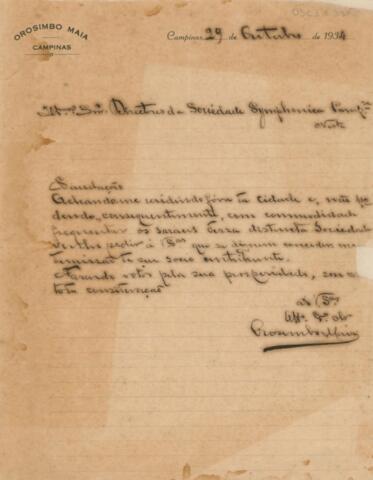 OROSIMBO MAIA
CAMPINAS
Campinas, 29 de Outubro de 1934
Directores da Sociedade Symphonica
Nesta
Saudação
Achando-me residindo fóra da cidade e, não po-
dendo, consequentemente, com commodidade
frequentar os saraus dessa distincta Sociedade
pedir á que se dignem conceder-me
demissão de seu socio contribuinte.
Fazendo votos pela sua prosperidade, sou com
toda consideração
de
Orosimbo Maia